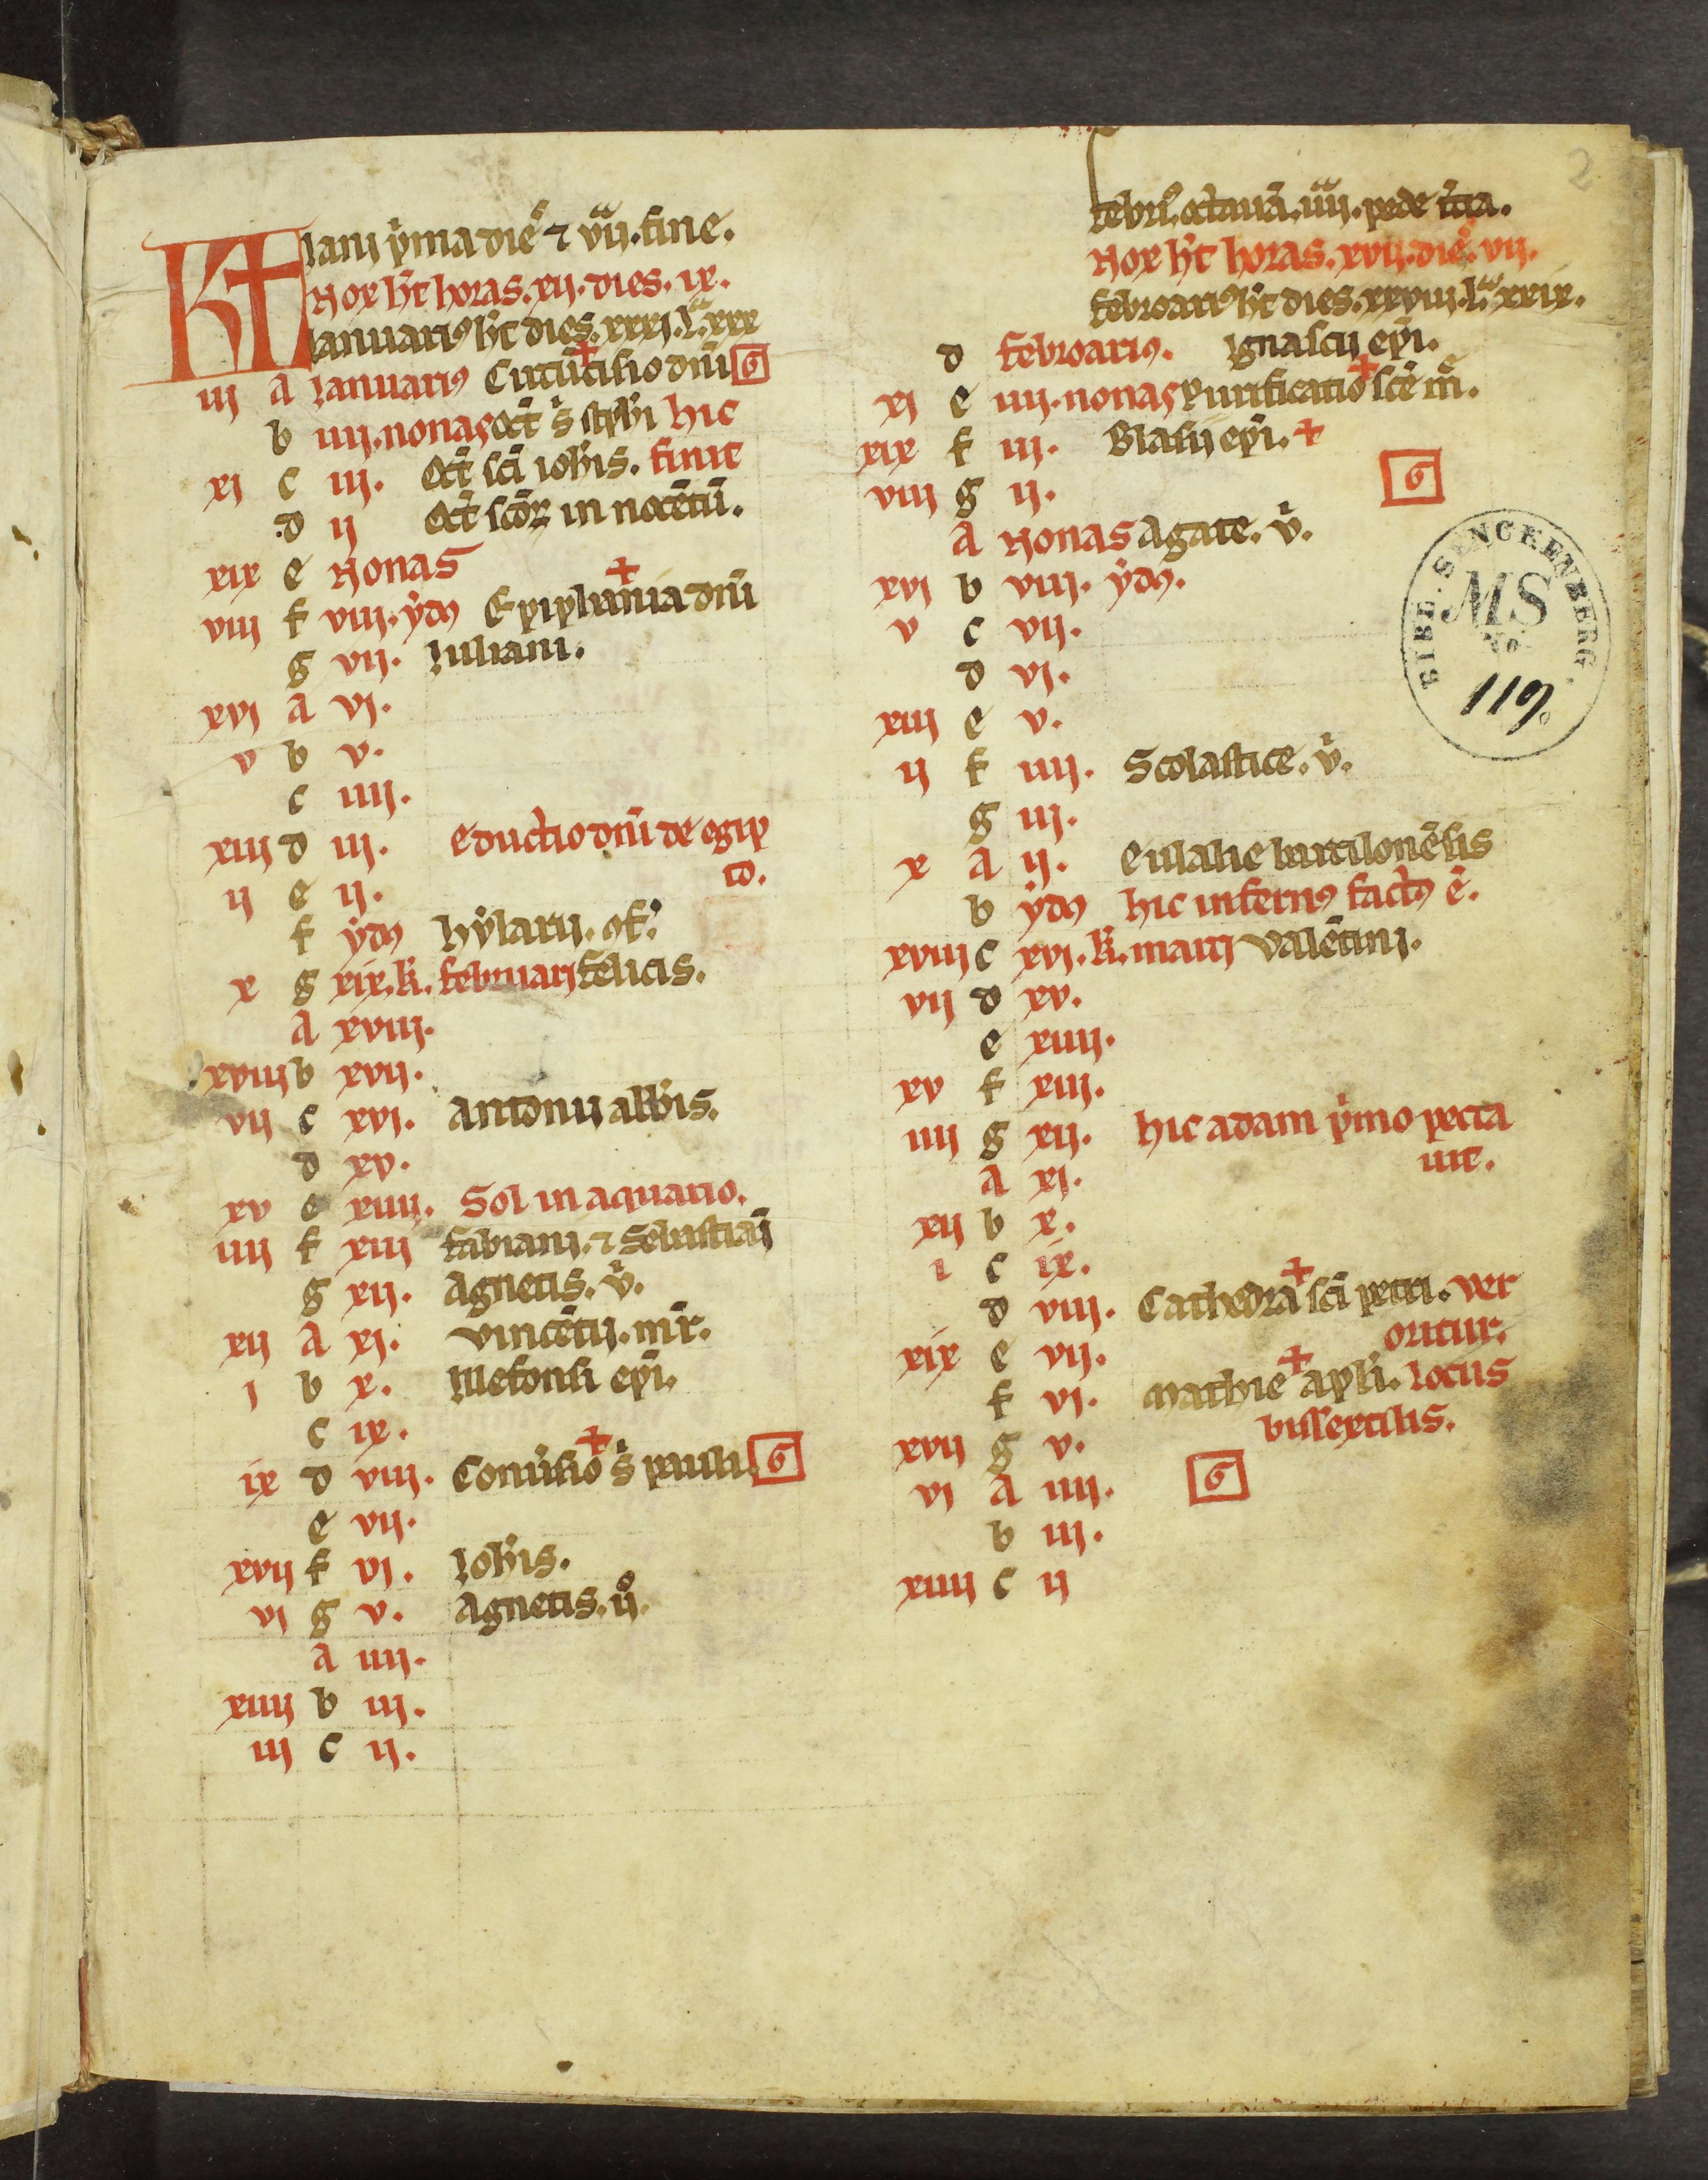 2
Kł Ianj p̉ma dieᷤ ⁊ vijᷓ. fine.
Nox ht̉ horas. xij. dies. ix.
Ianuariꝰ ht̉ dies. xxxj. lᷓ. xxx
iij A Ianuariꝰ Circũcisio dnĩ G
b iiij. nonas Oct̃ s̉ stph̉i hic
xj c iij. Oct̃ scĩ ioh̉is. finit
d ij Oct̃ scõꝝ in nocẽtũ.
xix e Nonas
viij f viij. ẏdꝰ Epiphania dnĩ
g vij. Iuliani.
xvj A vj.
v b v.
c iiij.
xiij d iij. eductio dnĩ de egip
to.
ij e ij.
f ẏdꝰ hẏlarij. ɔf.
x g xix. k̃. februarj felicis.
A xviij.
xviij b xvij.
vij c xvj. antonii abb̉is.
d xv.
xv e xiiij. Sol in aquario.
iiij f xiij fabianj. ⁊ Sebastiãj
g xij. Agnetis. v̉.
xij A xj. vincẽtij. mr̃.
j b x. Illefonsi epĩ.
c ix.
ix d viij. Conũsio s̉ pauli. G
e vij.
xvij f vj. Ioh̉is.
vj g v. Agnetis. ijͦ.
A iiij.
xiiij b iij.
iij c ij.
februꝰ. octauã. iiijᷓ. pede t̉cia.
Nox ht̉ horas. xvij. dieᷤ. vij.
febroariꝰ ht̉ dies. xxviij. lᷓ. xxix.
d febroariꝰ. Ignascij epĩ.
xj e iiij. nonas Purificatio scẽ m̃.
xix f iij. Blasij epĩ.
viij g ij. G
A Nonas Agate. v̉.
xvj b viij. ẏdꝰ.
v c vij.
d vj.
xiij e v.
ij f iiij. Scolastice. v̉.
g iij.
x A ij. eulalie barcilonẽsis
b ẏdꝰ hic infernꝰ factꝰ ẽ.
xviij c xvj. k̃. marcj valẽtinj.
vij d xv.
e xiiij.
xv f xiij.
iiij g xij. hic adam p̉mo pecca
uit.
A xj.
xij b x.
i c ix.
d viij. Cathedra scĩ petri. ver
oritur.
xix e vij.
f vj. Mathie apl̃i. locus
bissextilis.
xvij g v.
vj A iiij. G
b iij.
xiiij c ij
BIBL. SENCKENBERG.
MS
No.
119.